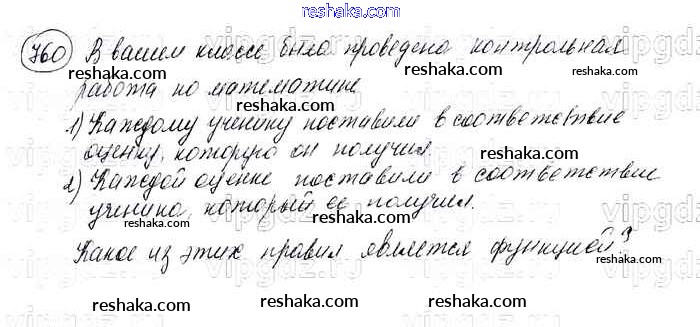 reshaka.com
760 В вашем классе была проведена контрольная
reshaka.com reshaka.com
работа по математике
1) Каждому ученику поставили в соответствие
оценку, которую он получил.
reshaka.com
2) Каждой оценке поставили в соответствие
reshaka.com
ученика, который ее получил.
reshaka.com reshaka.com
Какое из этих правил является функцией?
reshaka.com reshaka.com reshaka.com